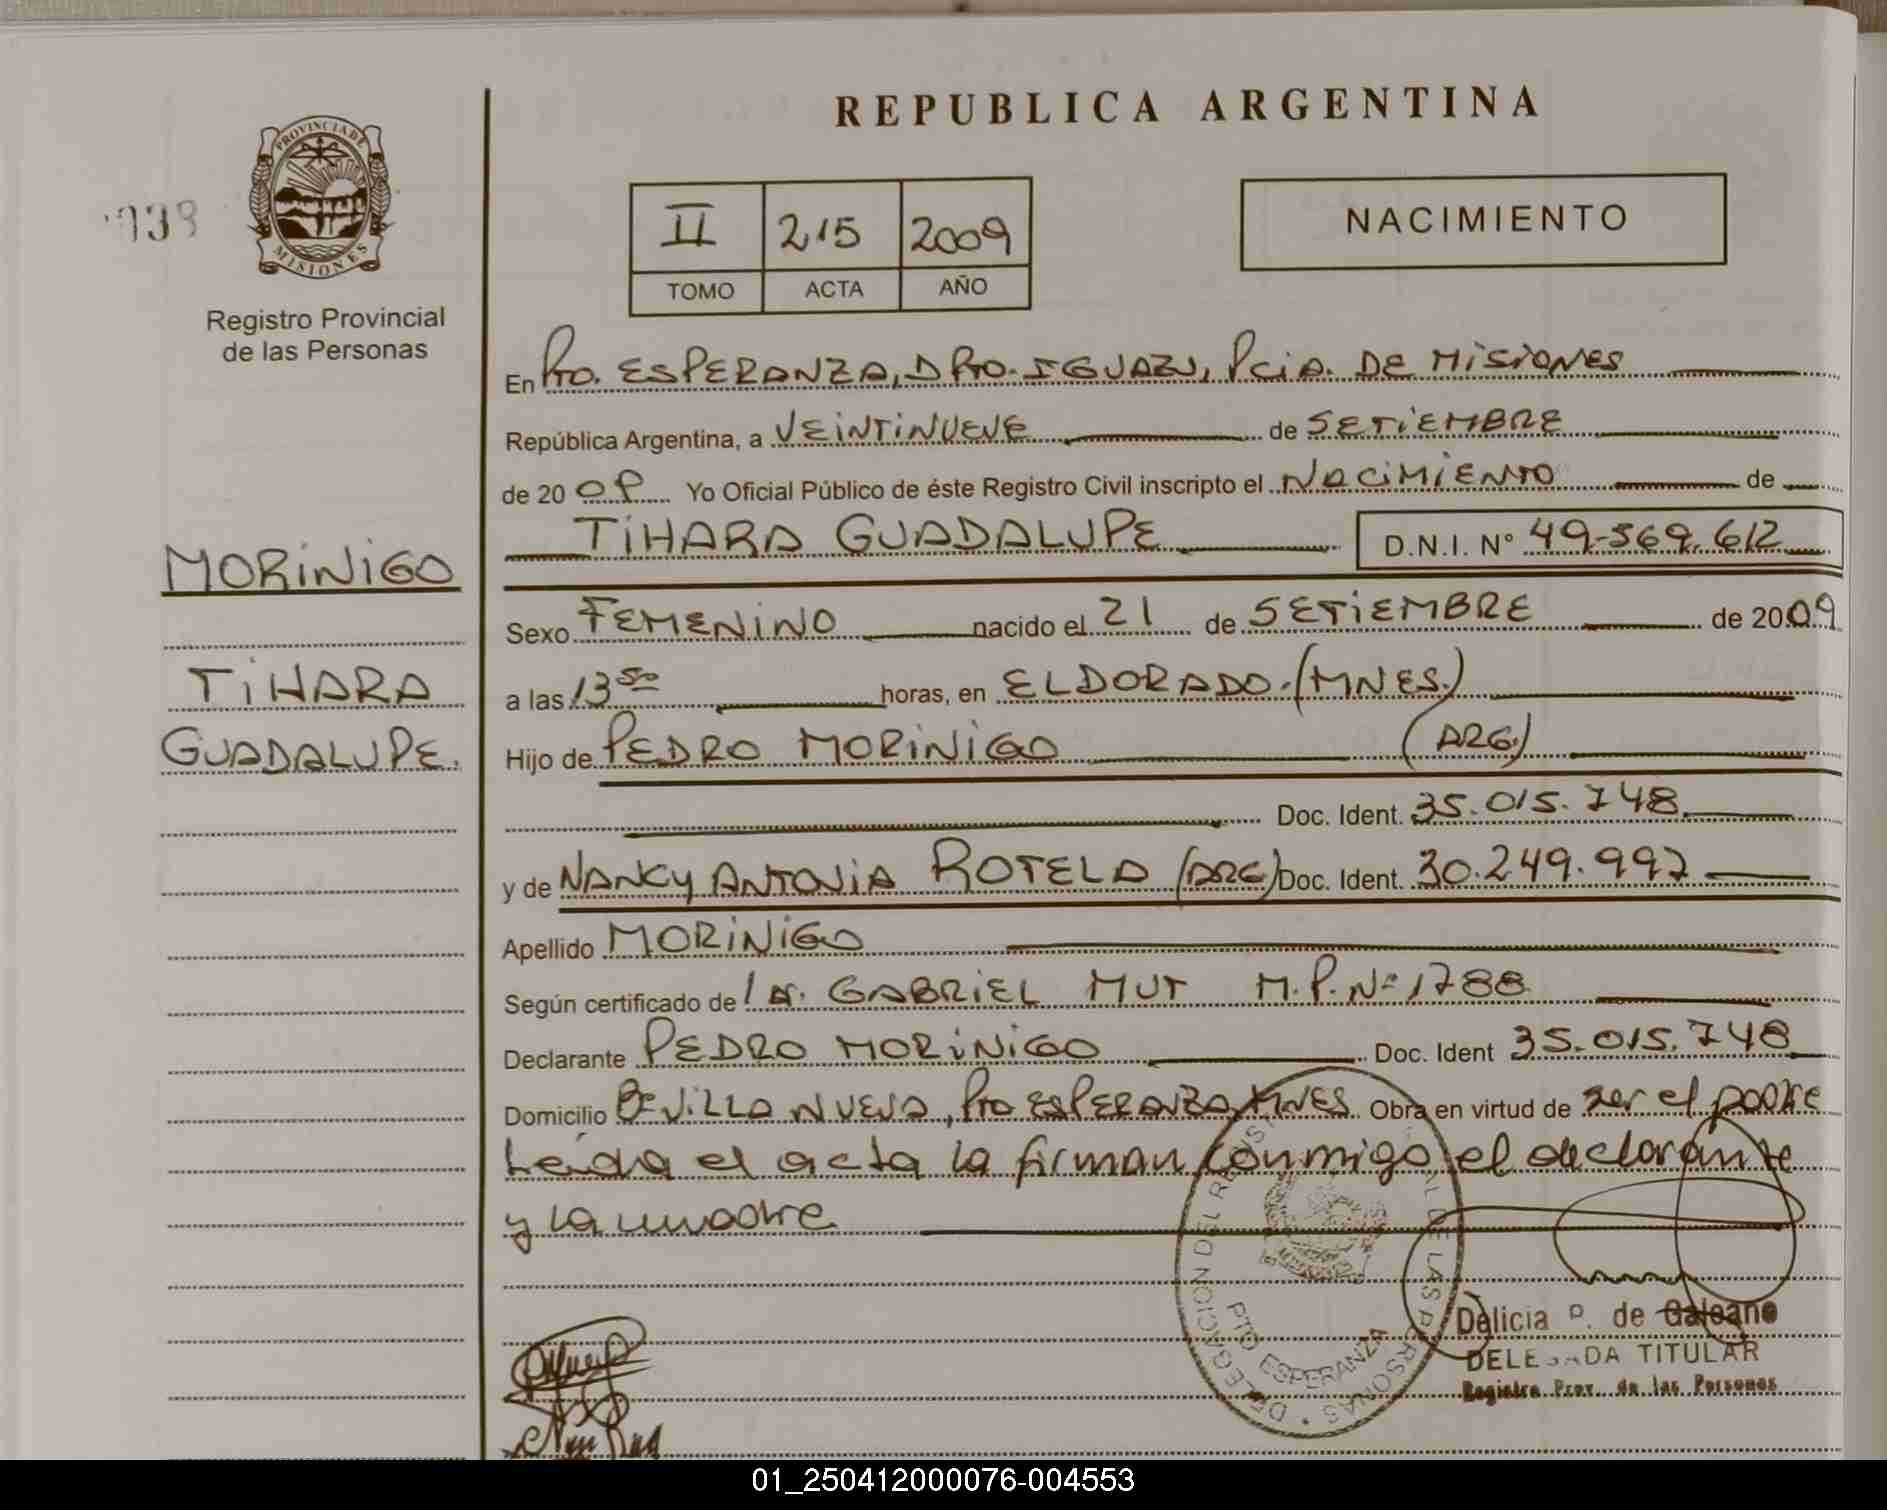 REPUBLICA ARGENTINA
PROVINCIA DE
MISIONES
Registro Provincial
de las Personas
II 215 2009
TOMO ACTA AÑO
NACIMIENTO
En Pto. ESPERANZA, DPto. IGUAZU, Pcia. DE MISIONES
República Argentina, a VEINTINUEVE de SETIEMBRE
de 20 09 Yo Oficial Público de éste Registro Civil inscripto el NACIMIENTO de
TIHARA GUADALUPE D.N.I. N° 49.569.612
MORINIGO
TIHARA
GUADALUPE.
Sexo FEMENINO nacido el 21 de SETIEMBRE de 2009
a las 13 50 horas, en ELDORADO. (MNES.)
Hijo de PEDRO MORINIGO (ARG.)
Doc. Ident. 35.015.748
y de NANCY ANTONIA ROTELA (ARG) Doc. Ident. 30.249.997
Apellido MORINIGO
Según certificado de GABRIEL MUT M.P.N° 1788
Declarante PEDRO MORINIGO Doc. Ident 35.015.748
Domicilio B° VILLA NUEVA, Pto ESPERANZA, MNES. Obra en virtud de ser el padre
Leida el acta la firman conmigo el declarante
y la madre
DELEGACION DEL REGIST AL DE LAS PERSONAS
PTO ESPERANZA
Delicia P. de Galeano
DELEGADA TITULAR
Registro Prov. de las Personas
01_250412000076-004553